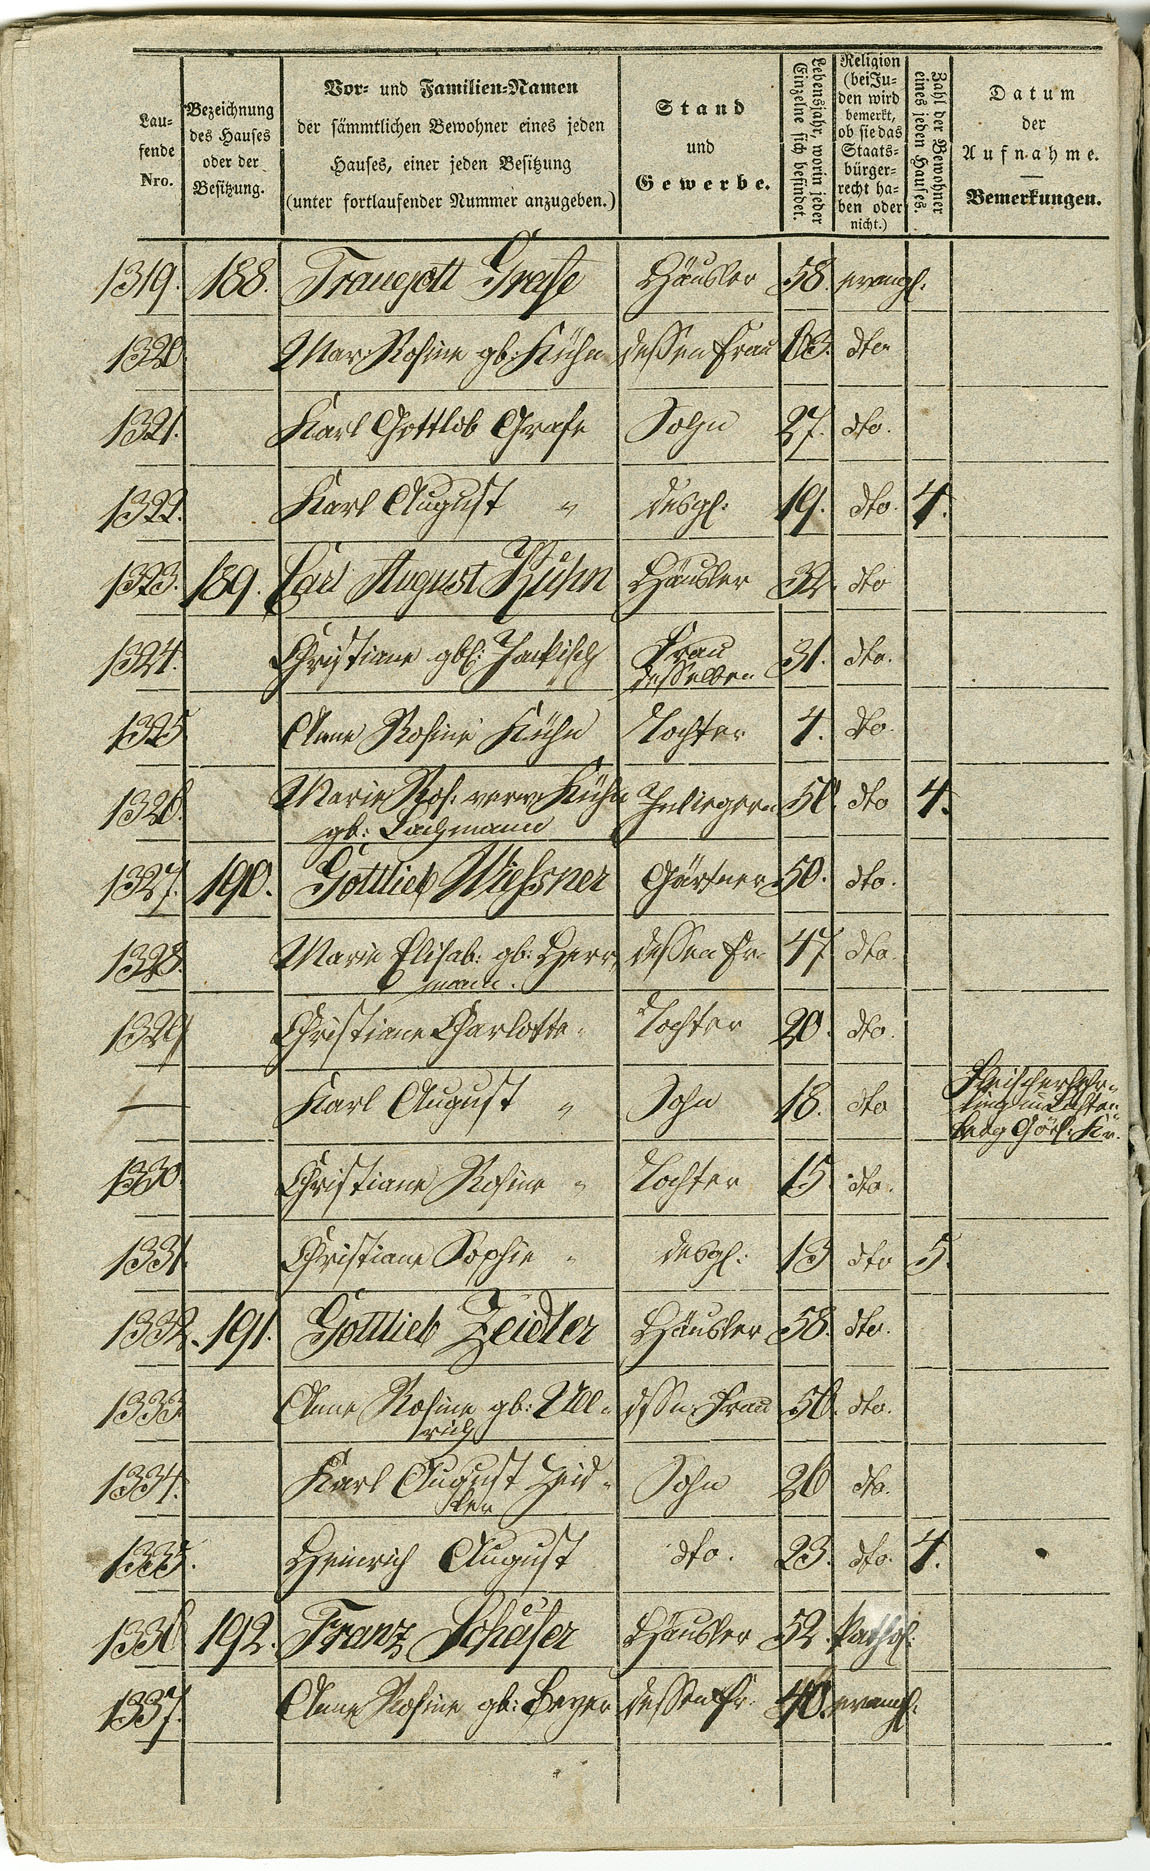 Lau-
fende
Nro.
Bezeichnung
des Hauses
oder der
Besitzung.
Vor- und Familien-Namen
der sämmtlichen Bewohner eines jeden
Hauses, einer jeden Besitzung
(unter fortlaufender Nummer anzugeben.)
Stand
und
Gewerbe.
Lebensjahr, worin jeder
Einzelne sich befindet.
Religion
(bei Ju-
den wird
bemerkt,
ob sie das
Staats-
bürger-
recht ha-
ben oder
nicht.)
Zahl der Bewohner
eines jeden Hauses.
Datum
der
Aufnahme.
Bemerkungen.
1319. 188. Traugott Grafe Häusler 58. evangl.
1320. Mar: Rosine gb: Kühn dessen Frau dto
1321. Karl Gottlob Grafe Sohn 27. dto.
1322. Karl August " desgl: 19. dto. 4.
1323. 189. Carl August Kühn Häusler 32. dto
1324. Christiane gb: Frau 31. dto.
desselben
1325 Anne Rosine Kühn Tochter 4. dto.
1326. Marie Ros: verw: Kühn Inliegerin 56. dto 4.
gb: Lachmann
1327. 190. Gottlieb Wiessner Gärtner 50. dto.
1328. Marie Elisab: gb: Herr dessen Fr. 47 dto.
mann.
1329 Christiane Charlotte " Tochter 20. dto.
— Karl August " Sohn 18. dto Fleischerlehr-
ling in
Görl: Kr.
1330. Christiane Rosine " Tochter 15. dto.
1331. Christiane Sophie " desgl: 13 dto 5.
1332. 191. Gottlieb Zeidler Häusler 58. dto.
1333 Anne Rosine gb: Ull- dssn. Frau 56. dto.
rich
1334. Karl August Zeid- Sohn 26 dto.
ler
1335. Heinrich August dto. 23. dto. 4.
1336 192. Franz Schäfer Häusler 52. kathol:
1337. Anne Rosine gb: Beyer dessen Fr. 40. evangl: